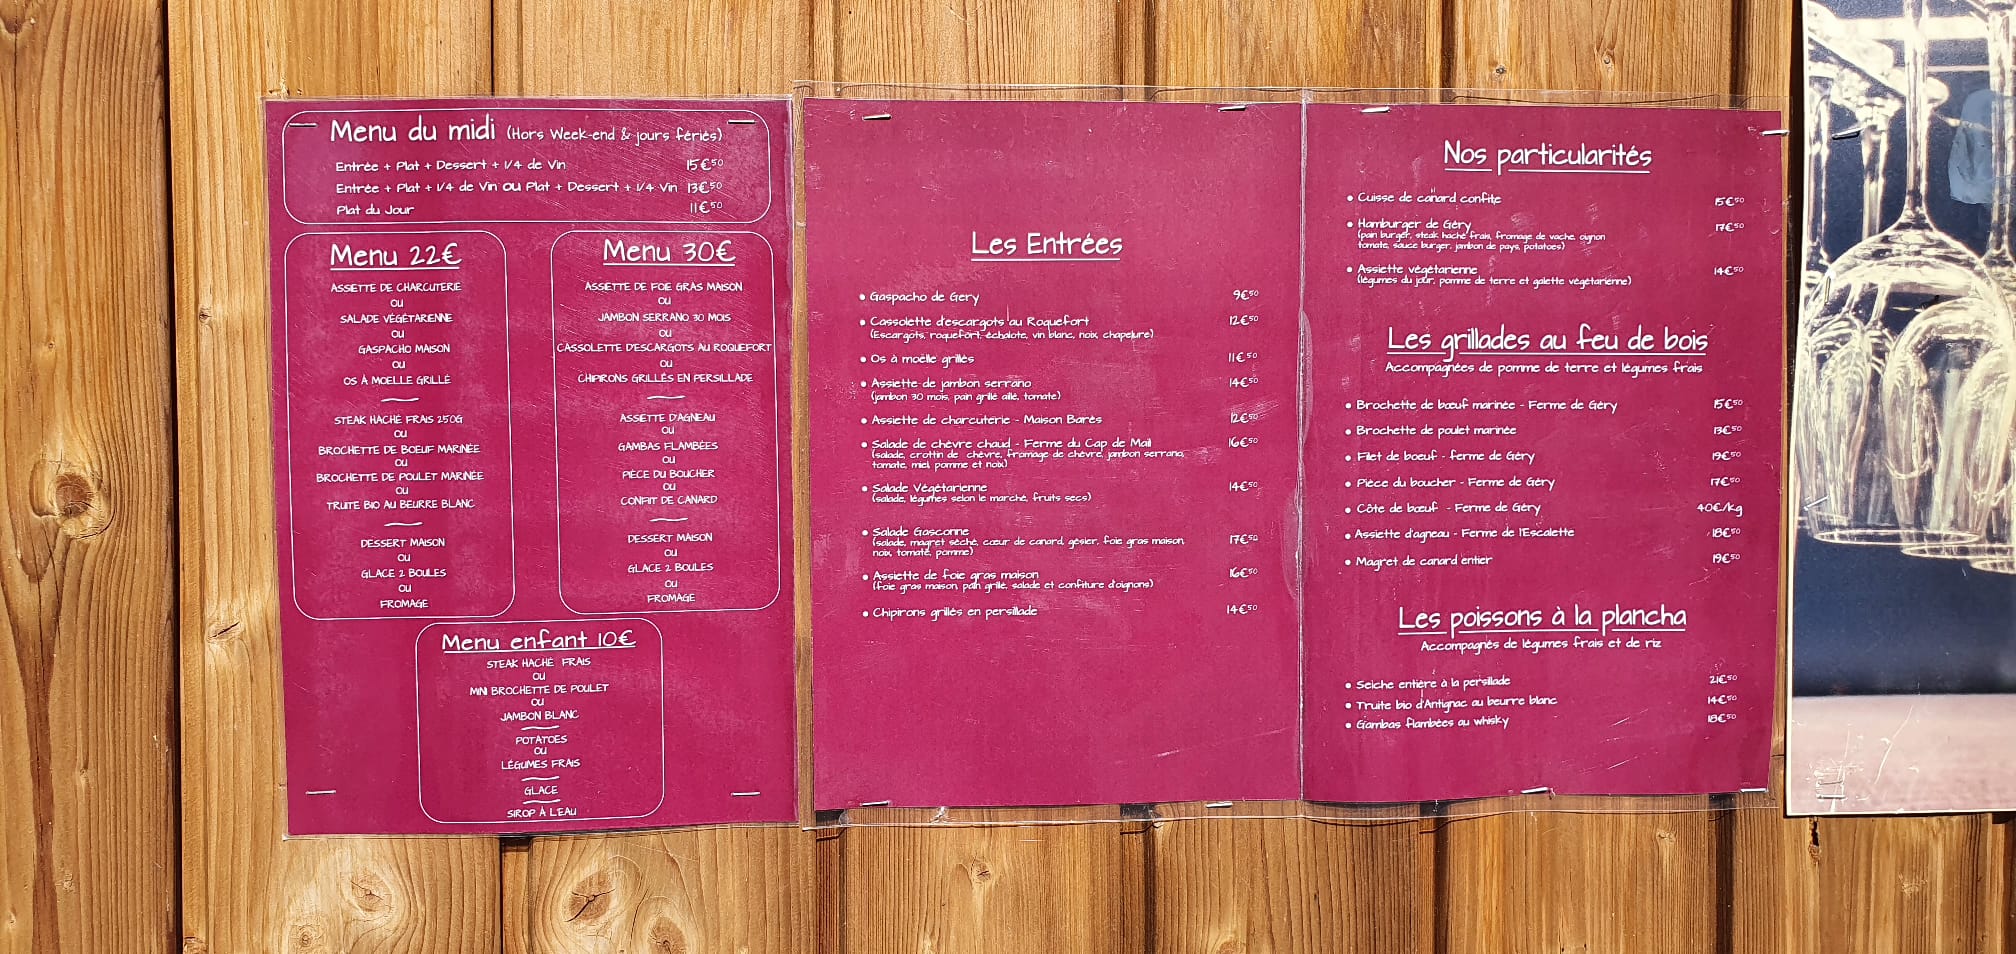 Menu du midi (Hors Week-end & jours fériés)
Entrée + Plat + Dessert + 1/4 de Vin 15€50
Entrée + Plat + 1/4 de Vin ou Plat + Dessert + 1/4 Vin 13€50
Plat du Jour 11€50
Menu 22€
ASSIETTE DE CHARCUTERIE
OU
SALADE VÉGÉTARIENNE
OU
GASPACHO MAISON
OU
OS À MOELLE GRILLÉ
STEAK HACHÉ FRAIS 250G
OU
BROCHETTE DE BOEUF MARINÉE
OU
BROCHETTE DE POULET MARINÉE
OU
TRUITE BIO AU BEURRE BLANC
DESSERT MAISON
OU
GLACE 2 BOULES
OU
FROMAGE
Menu 30€
ASSIETTE DE FOIE GRAS MAISON
OU
JAMBON SERRANO 30 MOIS
OU
CASSOLETTE D'ESCARGOTS AU ROQUEFORT
OU
CHIPIRONS GRILLÉS EN PERSILLADE
ASSIETTE D'AGNEAU
OU
GAMBAS FLAMBÉES
OU
PIÈCE DU BOUCHER
OU
CONFIT DE CANARD
DESSERT MAISON
OU
GLACE 2 BOULES
OU
FROMAGE
Menu enfant 10€
STEAK HACHÉ FRAIS
OU
MINI BROCHETTE DE POULET
OU
JAMBON BLANC
POTATOES
OU
LÉGUMES FRAIS
GLACE
SIROP À L'EAU
Les Entrées
• Gaspacho de Gery 9€50
• Cassolette d'escargots au Roquefort 12€50
(Escargots, roquefort, échalote, vin blanc, noix, chapelure)
• Os à moëlle grillés 11€50
• Assiette de jambon serrano 14€50
(jambon 30 mois, pain grillé aillé, tomate)
• Assiette de charcuterie - Maison Barès 12€50
• Salade de chèvre chaud - Ferme du Cap de Mail 16€50
(salade, crottin de chèvre, fromage de chèvre, jambon serrano,
tomate, miel, pomme et noix)
• Salade Végétarienne 14€50
(salade, légumes selon le marché, fruits secs)
• Salade Gasconne 17€50
(salade, magret séché, cœur de canard, gésier, foie gras maison,
noix, tomate, pomme)
• Assiette de foie gras maison 16€50
(foie gras maison, pain grillé, salade et confiture d'oignons)
• Chipirons grillés en persillade 14€50
Nos particularités
• Cuisse de canard confite 15€50
• Hamburger de Géry 17€50
(pain burger, steak haché frais, fromage de vache, oignon
tomate, sauce burger, jambon de pays, potatoes)
• Assiette végétarienne 14€50
(légumes du jour, pomme de terre et galette végétarienne)
Les grillades au feu de bois
Accompagnées de pomme de terre et légumes frais
• Brochette de bœuf marinée - Ferme de Géry 15€50
• Brochette de poulet marinée 13€50
• Filet de boeuf - ferme de Géry 19€50
• Pièce du boucher - Ferme de Géry 17€50
• Côte de bœuf - Ferme de Géry 40€/kg
• Assiette d'agneau - Ferme de l'Escalette 18€50
• Magret de canard entier 19€50
Les poissons à la plancha
Accompagnés de légumes frais et de riz
• Seiche entière à la persillade 21€50
• Truite bio d'Antignac au beurre blanc 14€50
• Gambas flambées au whisky 18€50